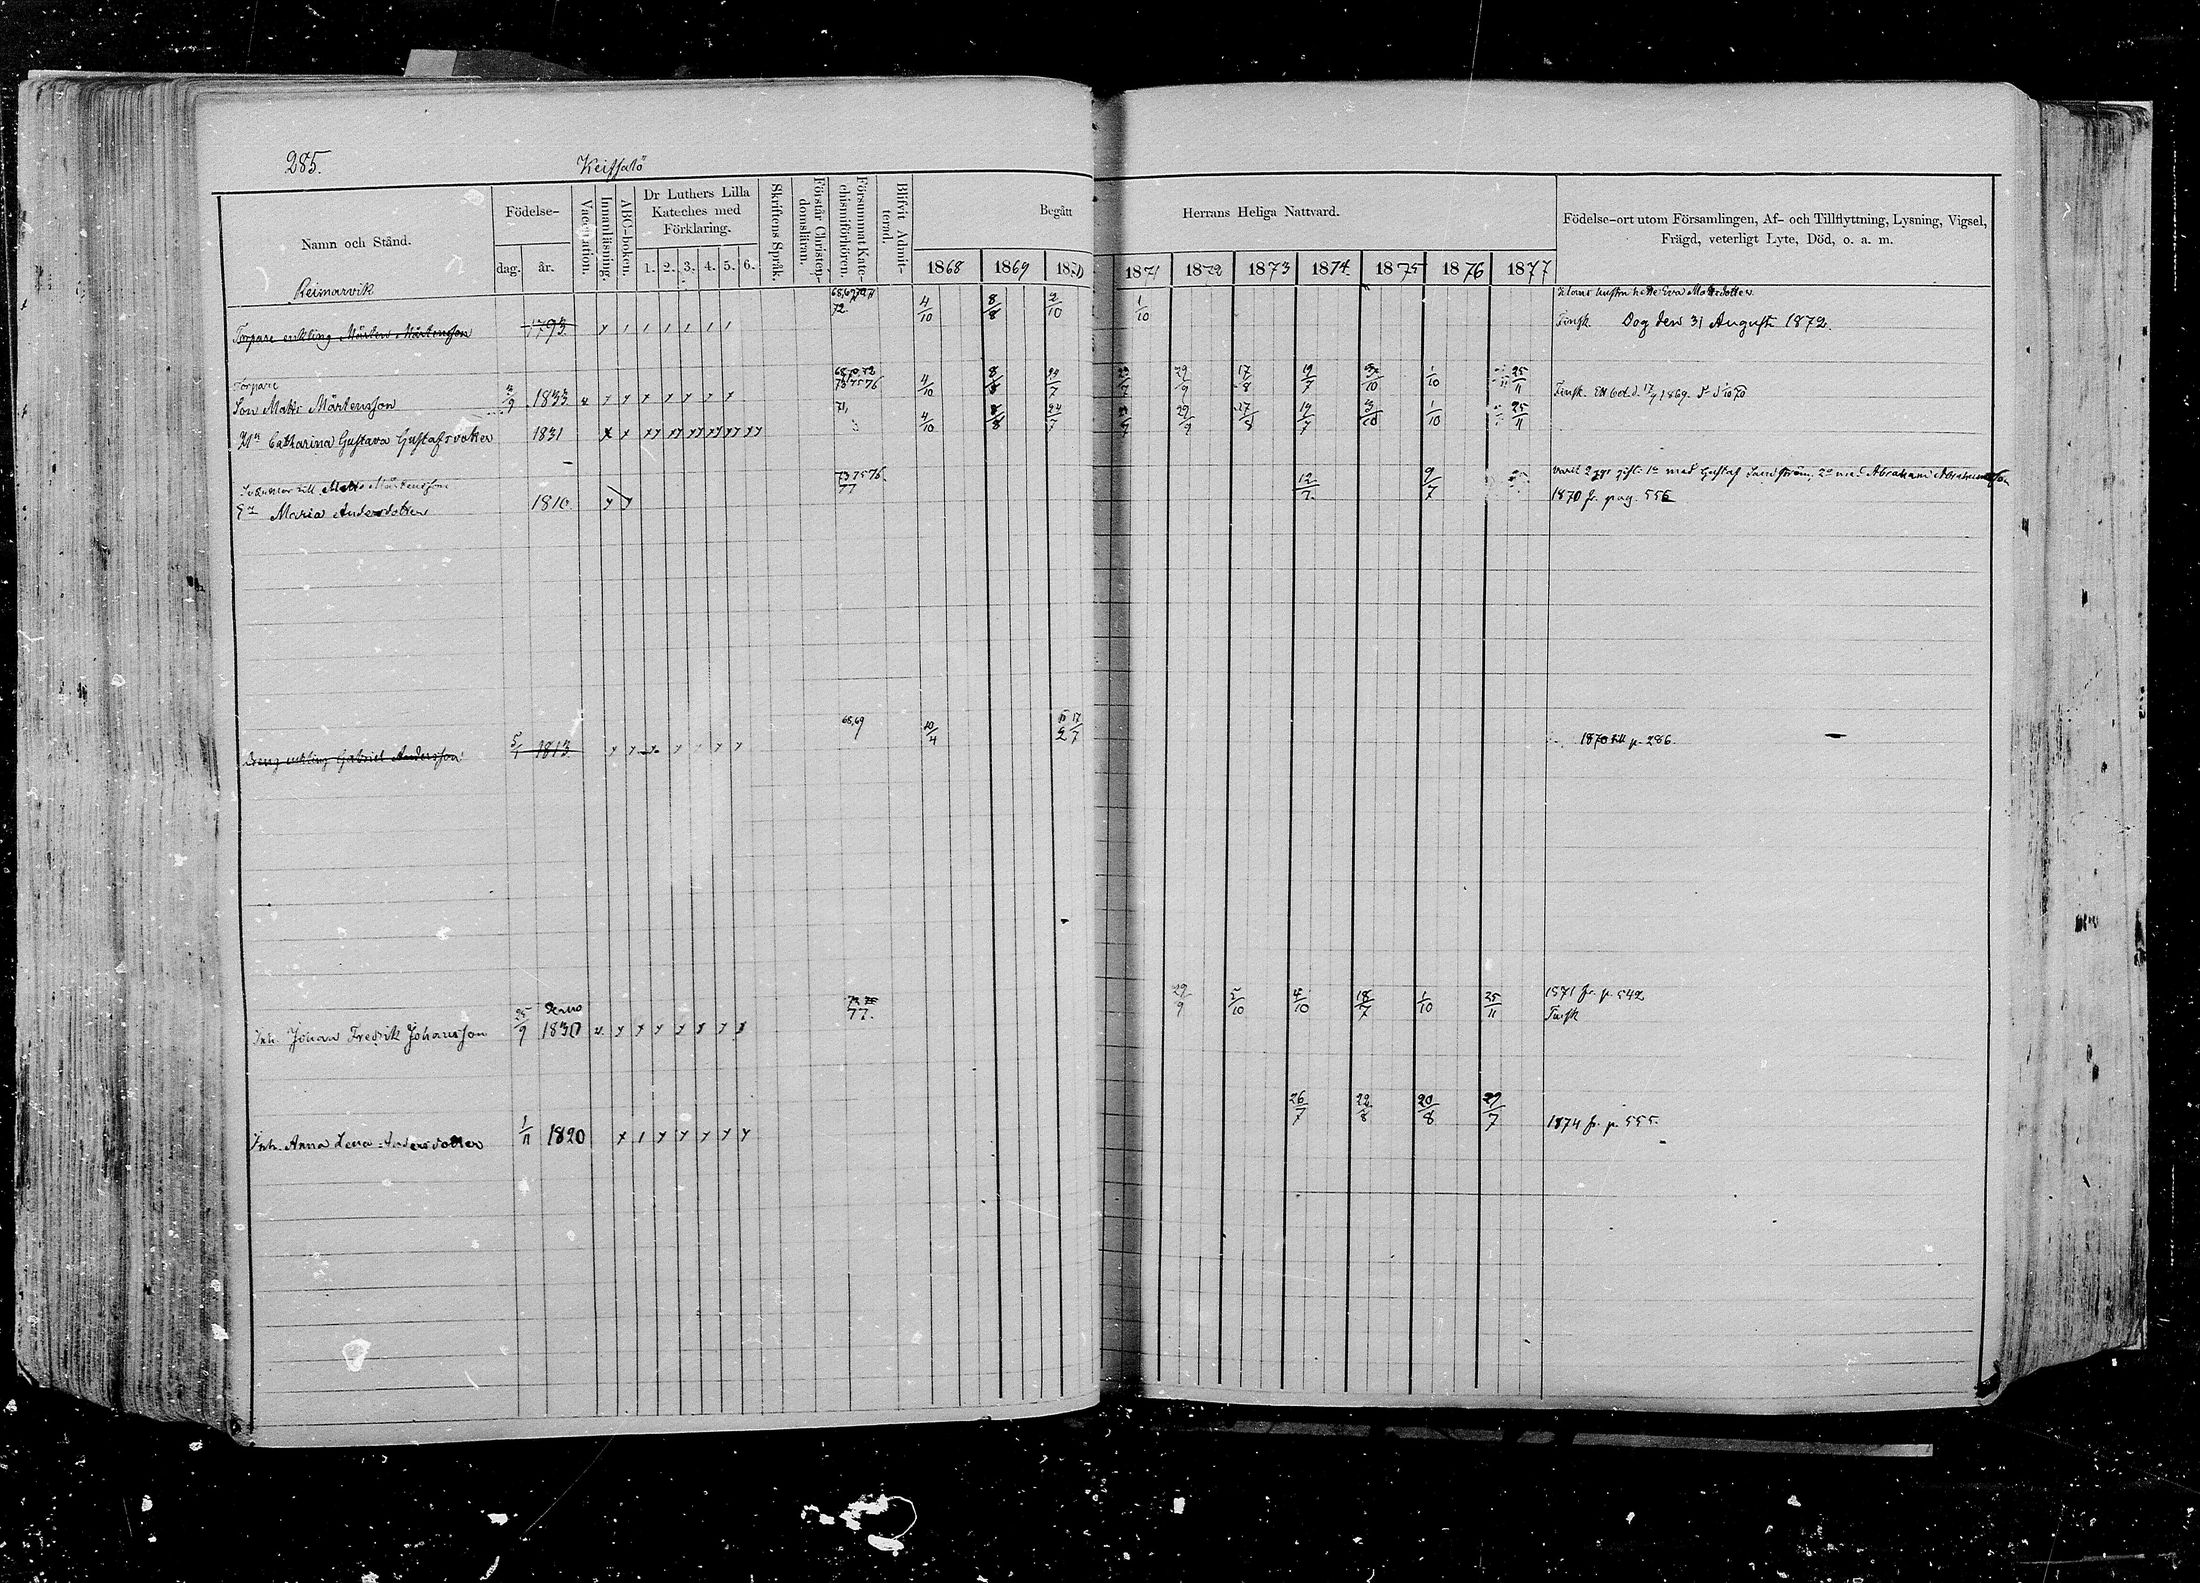 285.
Keissalö
Namn och Stånd.
Födelse-
dag. år.
Vaccination.
Innanläsning.
ABC-boken.
Dr Luthers Lilla
Kateches med
Förklaring.
1. 2. 3. 4. 5. 6.
Skriftens Språk.
Förstår Christen-
domsläran.
Försummat Kate-
chismiförhören.
Blifvit Admit-
terad.
Begått Herrans Heliga Nattvard.
1868 1869 1870 1871 1872 1873 1874 1875 1876 1877
Födelse-ort utom Församlingen, Af- och Tillflyttning, Lysning, Vigsel,
Frägd, veterligt Lyte, Död, o. a. m.
Reimarvik
72 4/10 8/8 2/10 1/10 hustru hette Eva Mattsdotter
Torpare enkling Mårten Mårtensson 1793 Finsk Dog den 31 Augusti 1872.
Torpare
Son Matts Mårtensson 3/9 1833 4/10 8/8 29/9 17/8 19/7 1/10 25/11 Finsk. 17/9 1869.
Catharina Gustava Gustafsdotter 1831 71, 4/10 8/8 24/7 29/9 17/8 19/7 3/10 1/10 25/11
Svärmor till Matts Mårtensson 73 75 76 77 12/7 9/7 varit 2 ggr gift: 1o med Gustaf Sandström, 2o med Abraham Abrahamsson
Maria Andersdotter 1810 1870 fr. pag. 555
68,69
Dreng enkling Gabriel Andersson 5/1 1813 1870 till p. 286.
Inh. Johan Fredrik Johansson 25/9 1830 77. 29/9 5/10 4/10 18/7 1/10 25/11 1871 fr. p. 542
Finsk
Inh. Anna Lena Andersdotter 1/11 1820 26/7 22/8 20/8 29/7 1874 fr. p. 555.